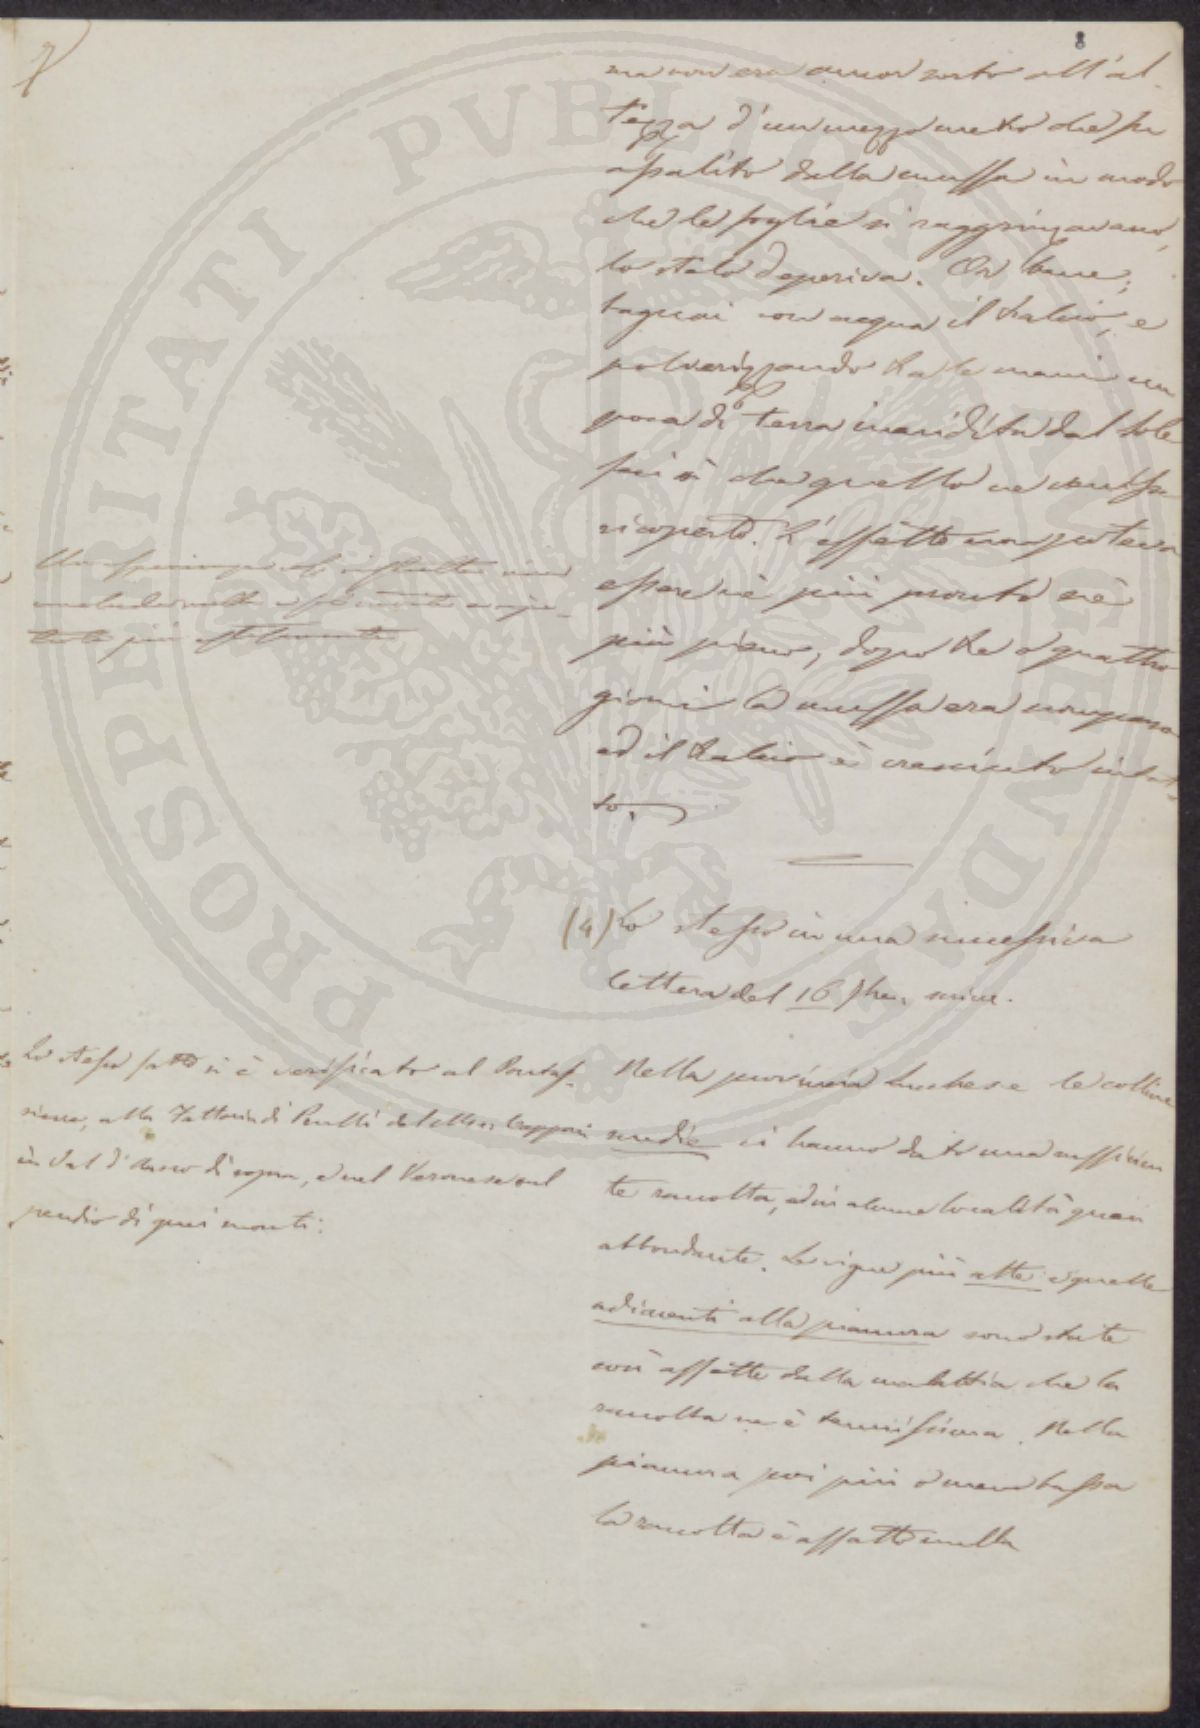 8
ma non era ancor sorto all'al
tezza d'un mezzo metro che fu
assalito dalla muffa in modo
che le foglie si raggrinzavano,
lo stelo deperiva. Or bene;
bagnai con acqua il tralcio, e
polverizzando tra le mani un
poca di terra inaridita dal sole
feci sì che quello ne venisse
ricoperto. L'effetto non poteva
essere nè più pronto nè
più pieno, dopo tre o quattro
giorni la muffa era scomparsa
ed il tralcio è cresciuto intat-
to.
(4) Lo stesso in una successiva
lettera del 16
Nella provincia Lucchese le colline
medie ci hanno dato una sufficien
te raccolta, ed in alcune località quasi
abbondante. Le vigne più alte e quelle
adiacenti alla pianura sono state
così affette dalla malattia che la
raccolta ne è tenuissima. Nella
pianura poi più o meno bassa
la raccolta è affatto nulla
Lo stesso fatto si è verificato al Pontas-
sieve, alla Fattoria di
in Val d'Arno di sopra, e nel Veronese sul
pendio di quei monti:
PROSPERITATI PUBLICAE AUGENDAE